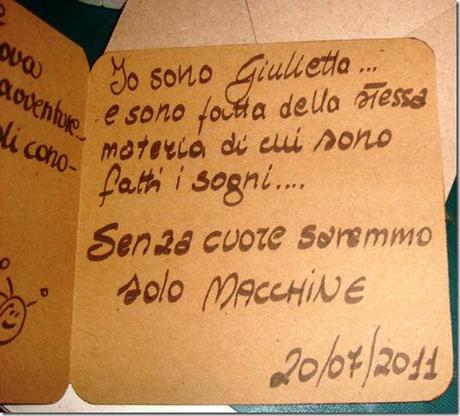 ova
avventure...
di cono-
Io sono Giulietta...
e sono fatta della stessa
materia di cui sono
fatti i sogni....
Senza cuore saremmo
solo MACCHINE
20/07/2011